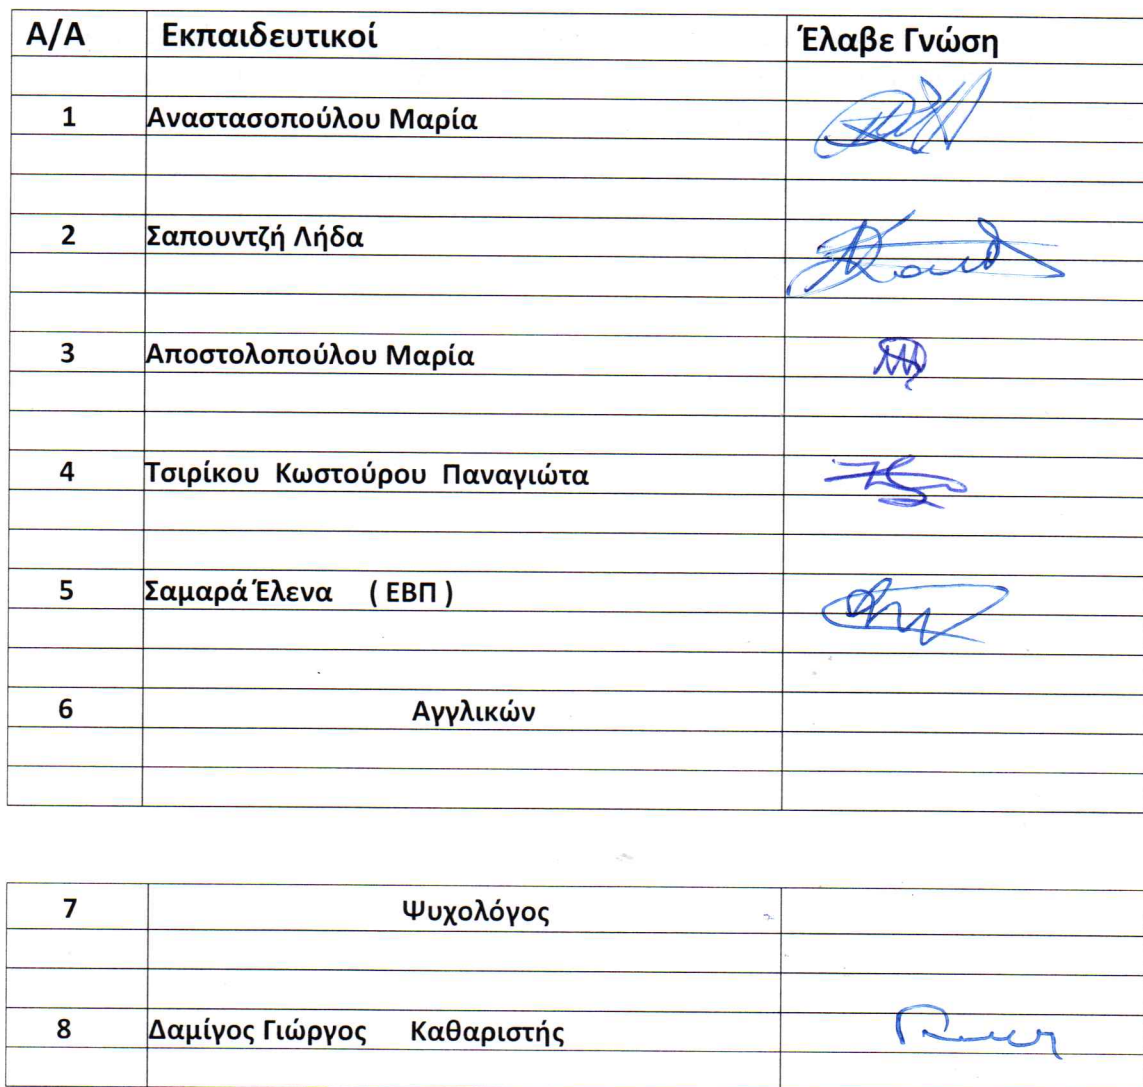 Α/Α Εκπαιδευτικοί Έλαβε Γνώση
1 Αναστασοπούλου Μαρία
2 Σαπουντζή Λήδα
3 Αποστολοπούλου Μαρία
4 Τσιρίκου Κωστούρου Παναγιώτα
5 Σαμαρά Έλενα ( ΕΒΠ )
6 Αγγλικών
7 Ψυχολόγος
8 Δαμίγος Γιώργος Καθαριστής